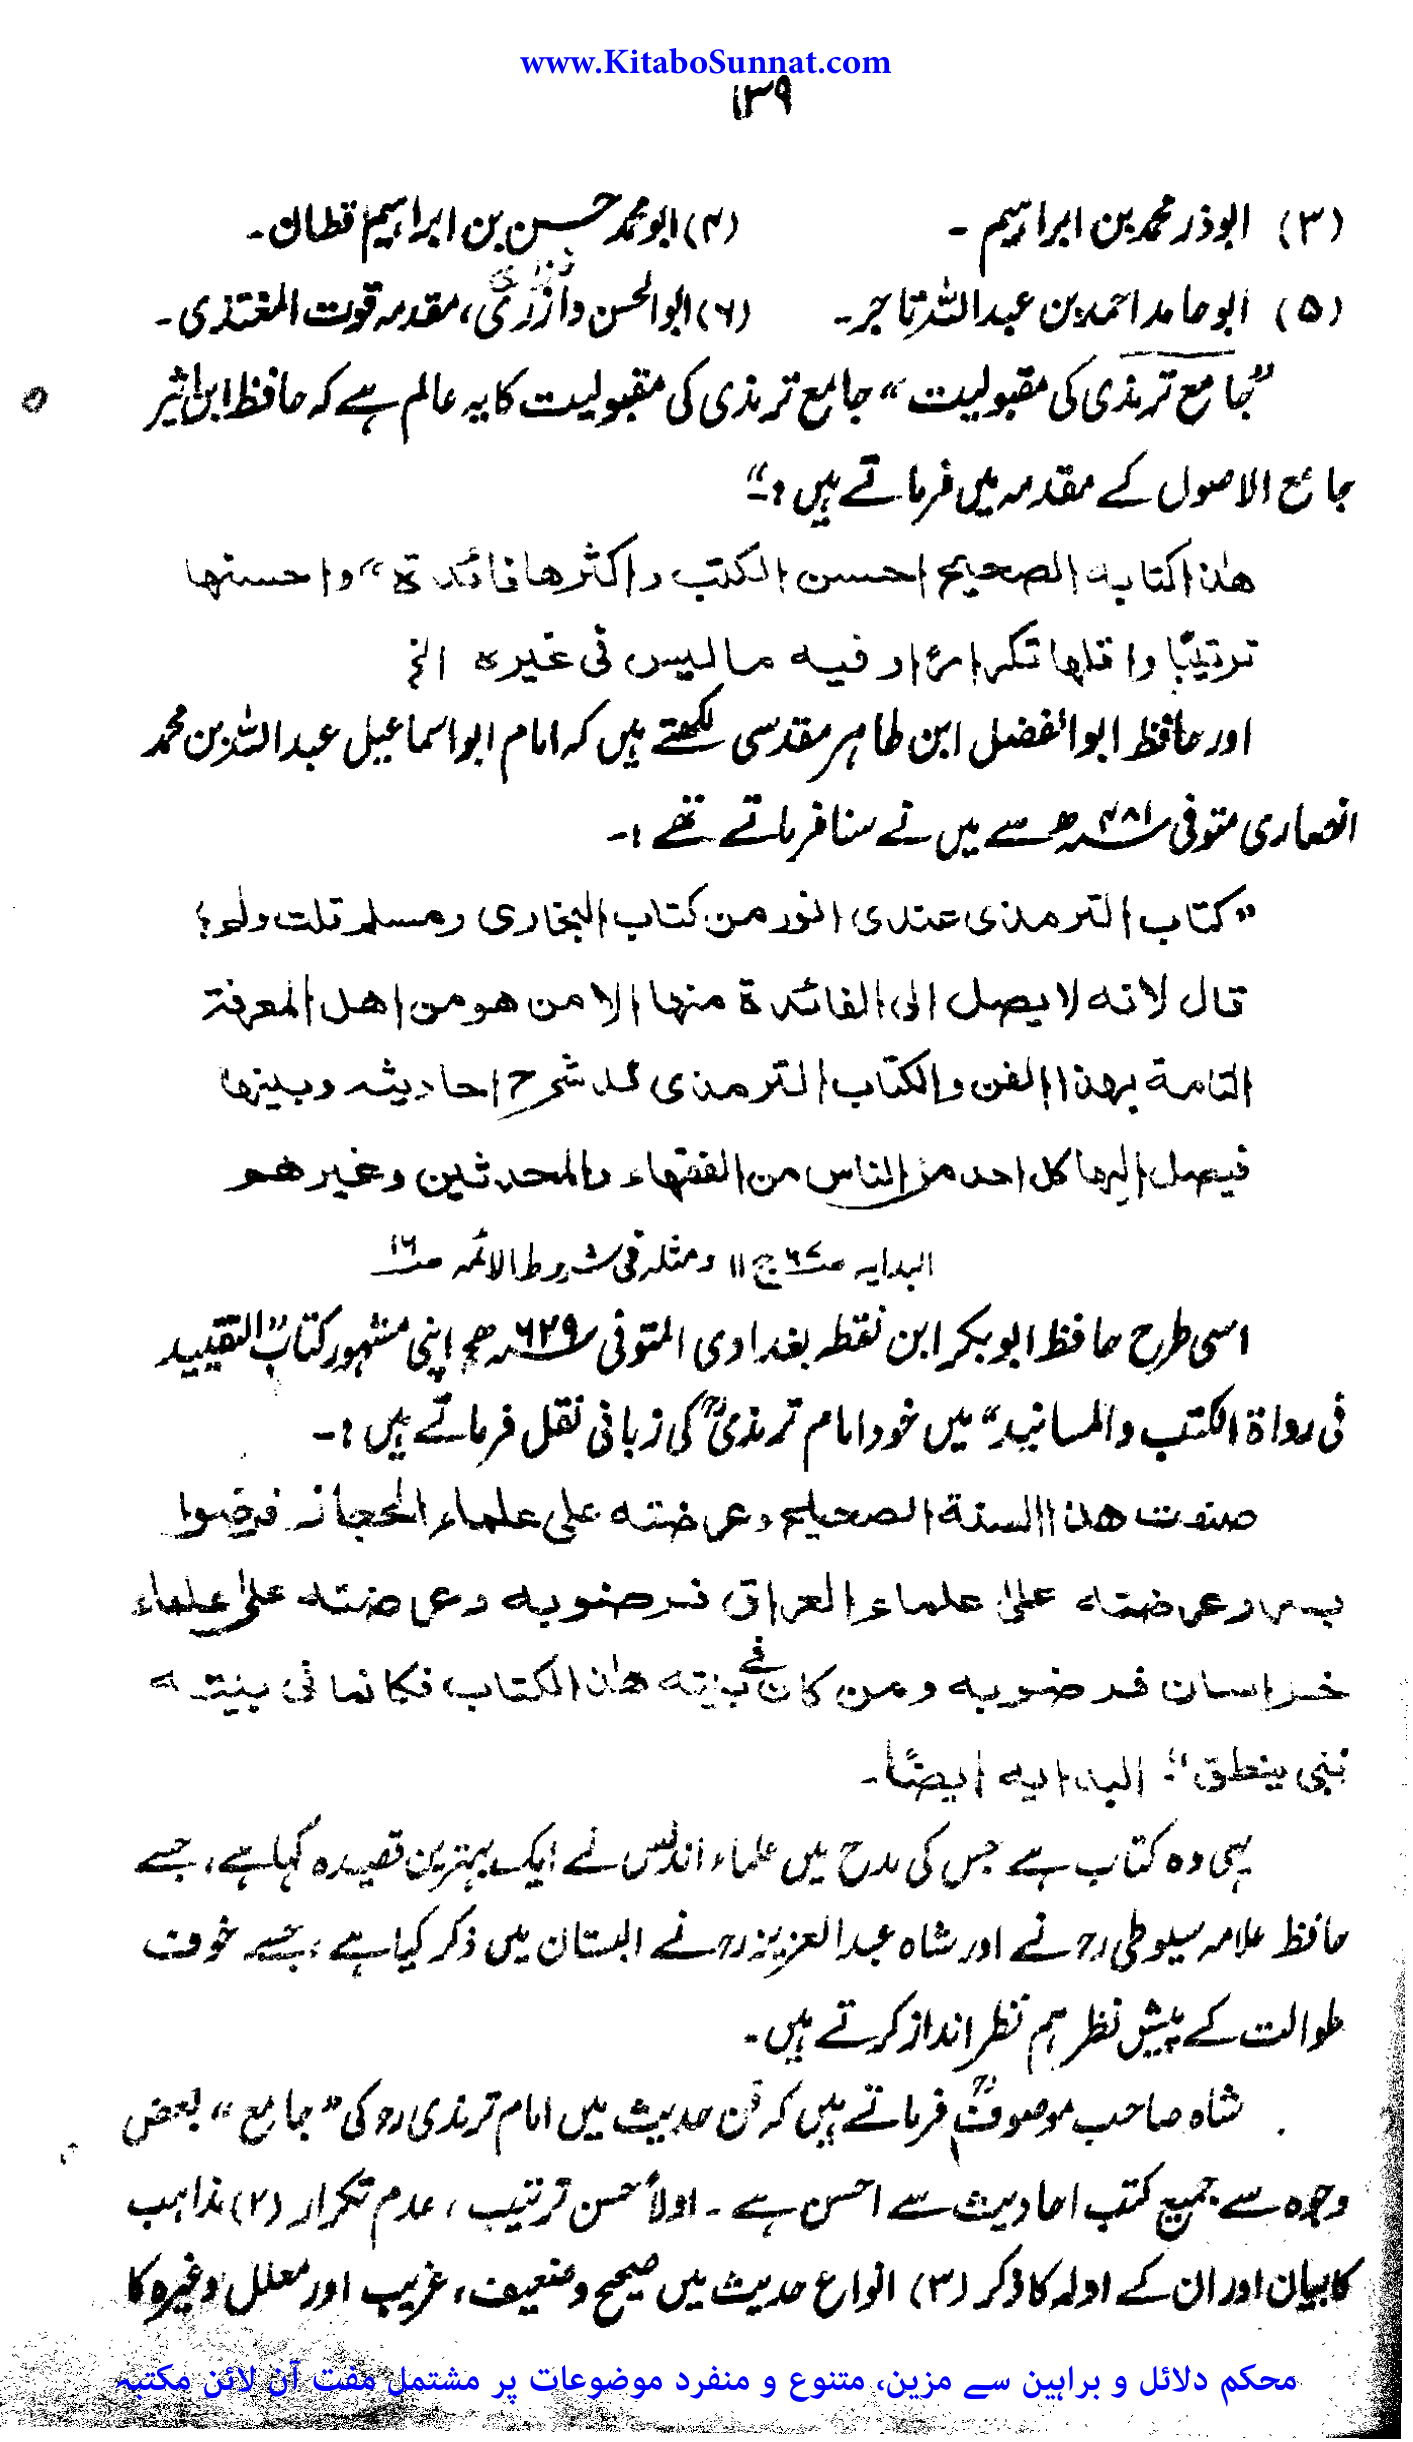 www.KitaboSunnat.com
۱۳۹
(۳) ابوذر محمد بن ابراہیم ۔ (۴) ابو محمد حسن بن ابراہیم قطان ۔
(۵) ابو حامد احمد بن عبداللہ تاجر ۔ (۶) ابوالحسن واذری، مقدمہ قوت المغتذی ۔
”جامع ترمذی کی مقبولیت“ جامع ترمذی کی مقبولیت کا یہ عالم ہے کہ حافظ ابن اثیر
جامع الاصول کے مقدمہ میں فرماتے ہیں :۔“
هذا کتابه الصحیح احسن الکتب واکثرها فائدة“ واحسنها
ترتیبًا واقلها تکرارًا وفیه مالیس فی غیره الخ
اور حافظ ابوالفضل ابن طاہر مقدسی لکھتے ہیں کہ امام ابو اسماعیل عبداللہ بن محمد
انصاری متوفی ۴۸۱ھ سے میں نے سنا فرماتے تھے :۔
”کتاب الترمذی عندی انور من کتاب البخاری ومسلم قلت ولم؟
قال لانه لا یصل الی الفائدة منها الا من هو من اهل المعرفة
التامة بهذا الفن والکتاب الترمذی قد شرح احادیثه وبینها
فیصل الیها کل احد من الناس من الفقهاء والمحدثین وغیرهم
البدایہ ص۶۷ ج ۱۱ ومثلہ فی شروط الائمہ ص۱۶
اسی طرح حافظ ابوبکر ابن نقطہ بغدادی المتوفی ۶۲۹ھ اپنی مشہور کتاب ”التقیید
فی رواة الکتب والمسانید“ میں خود امام ترمذیؒ کی زبانی نقل فرماتے ہیں :۔
صنفت هذا المسند الصحیح وعرضته علی علماء الحجاز فرضوا
به وعرضته علی علماء العراق فرضوبه وعرضته علی علماء
خراسان فرضوبه ومن کان فی بیته هذا الکتاب فکانما فی بیته
نبی ینطق“ البدایه ایضًا۔
یہی وہ کتاب ہے جس کی مدح میں علماء اندلس نے ایک بہترین قصیدہ کہا ہے، جسے
حافظ علامہ سیوطی رح نے اور شاہ عبدالعزیز رح نے البستان میں ذکر کیا ہے، جسے خوف
طوالت کے پیش نظر ہم نظر انداز کرتے ہیں ۔
شاہ صاحب موصوفؒ فرماتے ہیں کہ فن حدیث میں امام ترمذی رح کی ”جامع“ بعض
وجوہ سے جمیع کتب احادیث سے احسن ہے ۔ اولاً حسن ترتیب، عدم تکرار (۲) مذاہب
کا بیان اور ان کے اولہ کا ذکر (۳) انواع حدیث میں صحیح وضعیف، غریب اور معلل وغیرہ کا
محکم دلائل و براہین سے مزین، متنوع و منفرد موضوعات پر مشتمل مفت آن لائن مکتبہ